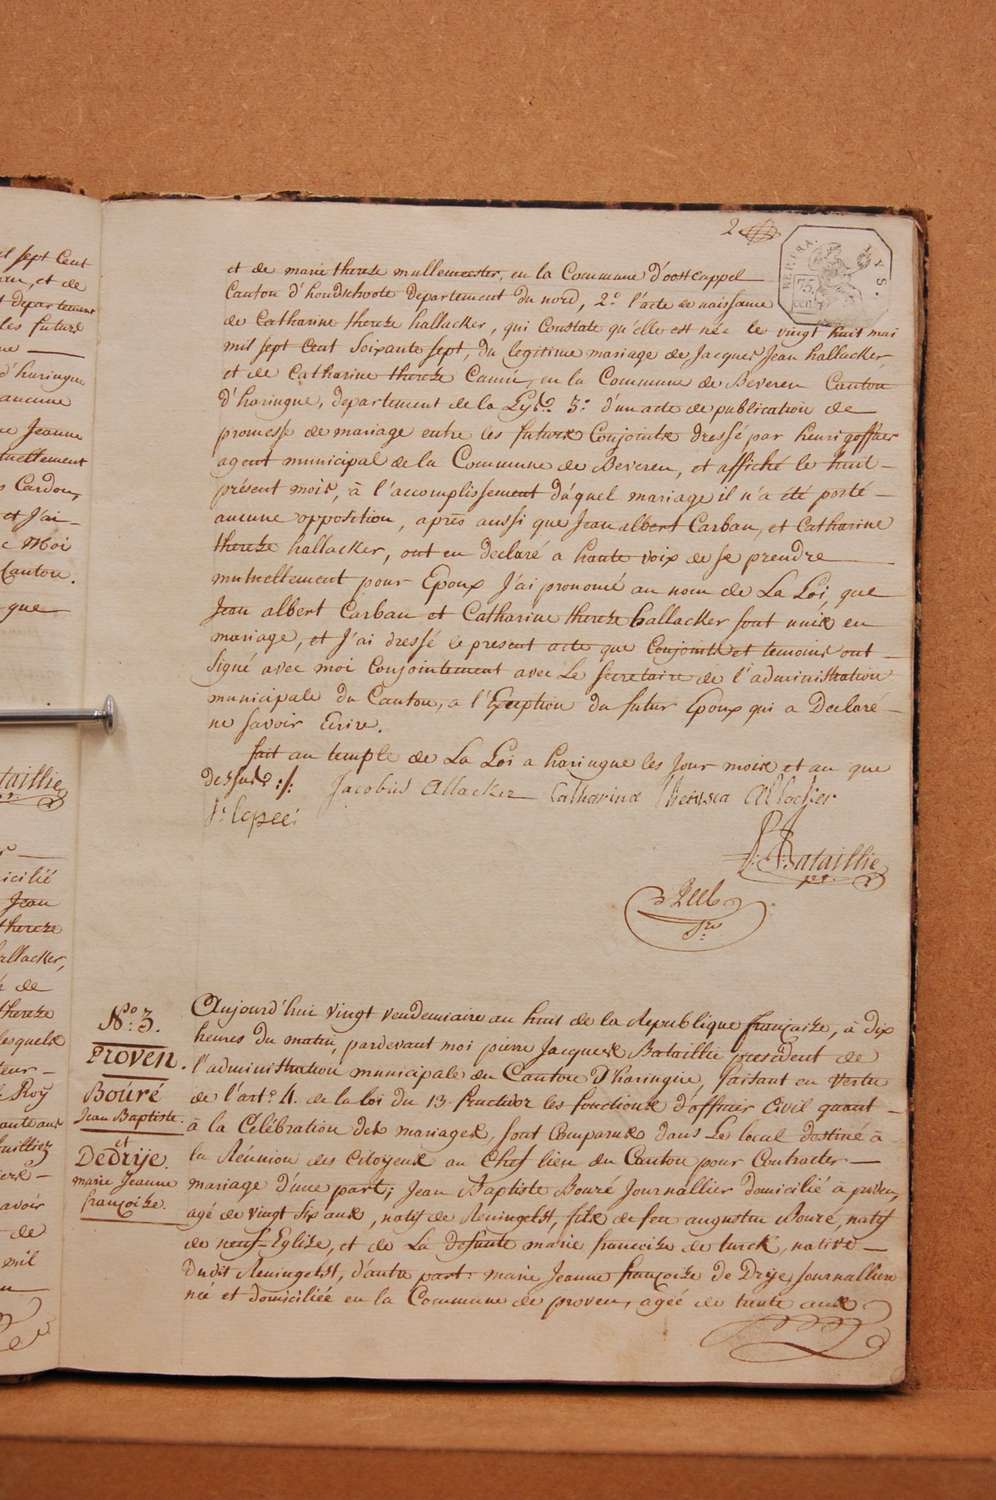 il sept Cent
, et de
departement
les future
ne
d'haringue
aucune
ne Jeanne
mutuellement
Cardon,
et J'ai
c Moi
Canton.
que
Bataillie
icilié
Jean
thereze
hallacker,
de
thereze
lesquels
teur
Roÿ
avoir
de
mil
2
75
CEN
LYS.
et de marie thereze mullemeester, en la Commune d'oostcappel
Canton d'hondschoote departement du nord, 2.° l'acte de naissanse
de Catharine thereze hallacker, qui Constate qu'elle est née le vingt huit mai
mil sept Cent soixante sept, du legitime mariage de Jacques Jean hallacker
et de Catharine thereze Camü, en la Commune de Beveren Canton
d'haringue, departement de la Lys. 3.° d'un acte de publication de
promesse de mariage entre les futurs Conjoints dressé par henri goffaer
agent municipal de la Commune de Beveren, et affiché le huit
présent mois, à l'accomplissement dúquel mariage il n'a été porté
aucune opposition, après aussi que Jean albert Carbau, et Catharine
thereze hallacker, ont en declaré a haute voix de se prendre
mutuellement pour Epoux J'ai prononcé au nom de La Loi, que
Jean albert Carbau et Catharine thereze hallacker sont unis en
mariage, et J'ai dressé le present acte que Conjoints et temoins ont
signé avec moi Conjointement avec Le secretaire de l'administration
municipale du Canton, a l'Exeption du futur Epoux qui a Declaré
ne savoir Ecrire.
fait au temple de La Loi a haringue les Jour mois et an que
dessus ./. Jacobus Allacker Catharina Theresea Allacker
lepee
P. J. Bataillie
pr.
N.o 3.
Proven.
Boúré
Jean Baptiste
et
DeDrije.
marie Jeanne
françoise.
Aujourd'hui vingt vendemiaire an huit de la Republique française, à dix
heures du matin, pardevant moi pierre Jacques Bataillie president de
l'administration municipale du Canton D'haringue, faisant en vertu
de l'art.e 4. de la loi du 13. fructidor les fonctions d'officier Civil quant
à la Célébration des mariages, sont Comparus dans Le local destiné à
la Réunion des Citoyens au Chef lieu du Canton pour Contracter
mariage d'une part; Jean Baptiste Bouré Journallier domicilié à proven,
agé de vingt six ans, natif de Reningelst, fils de feu augustin Bouré, natif
de neuf-Eglise, et de La defunte marie francoise de turck, native
Dudit Reningelst, d'autre part: marie Jeanne françoise De Drije, Journallière
née et domiciliée en la Commune de proven, agée de trente ans